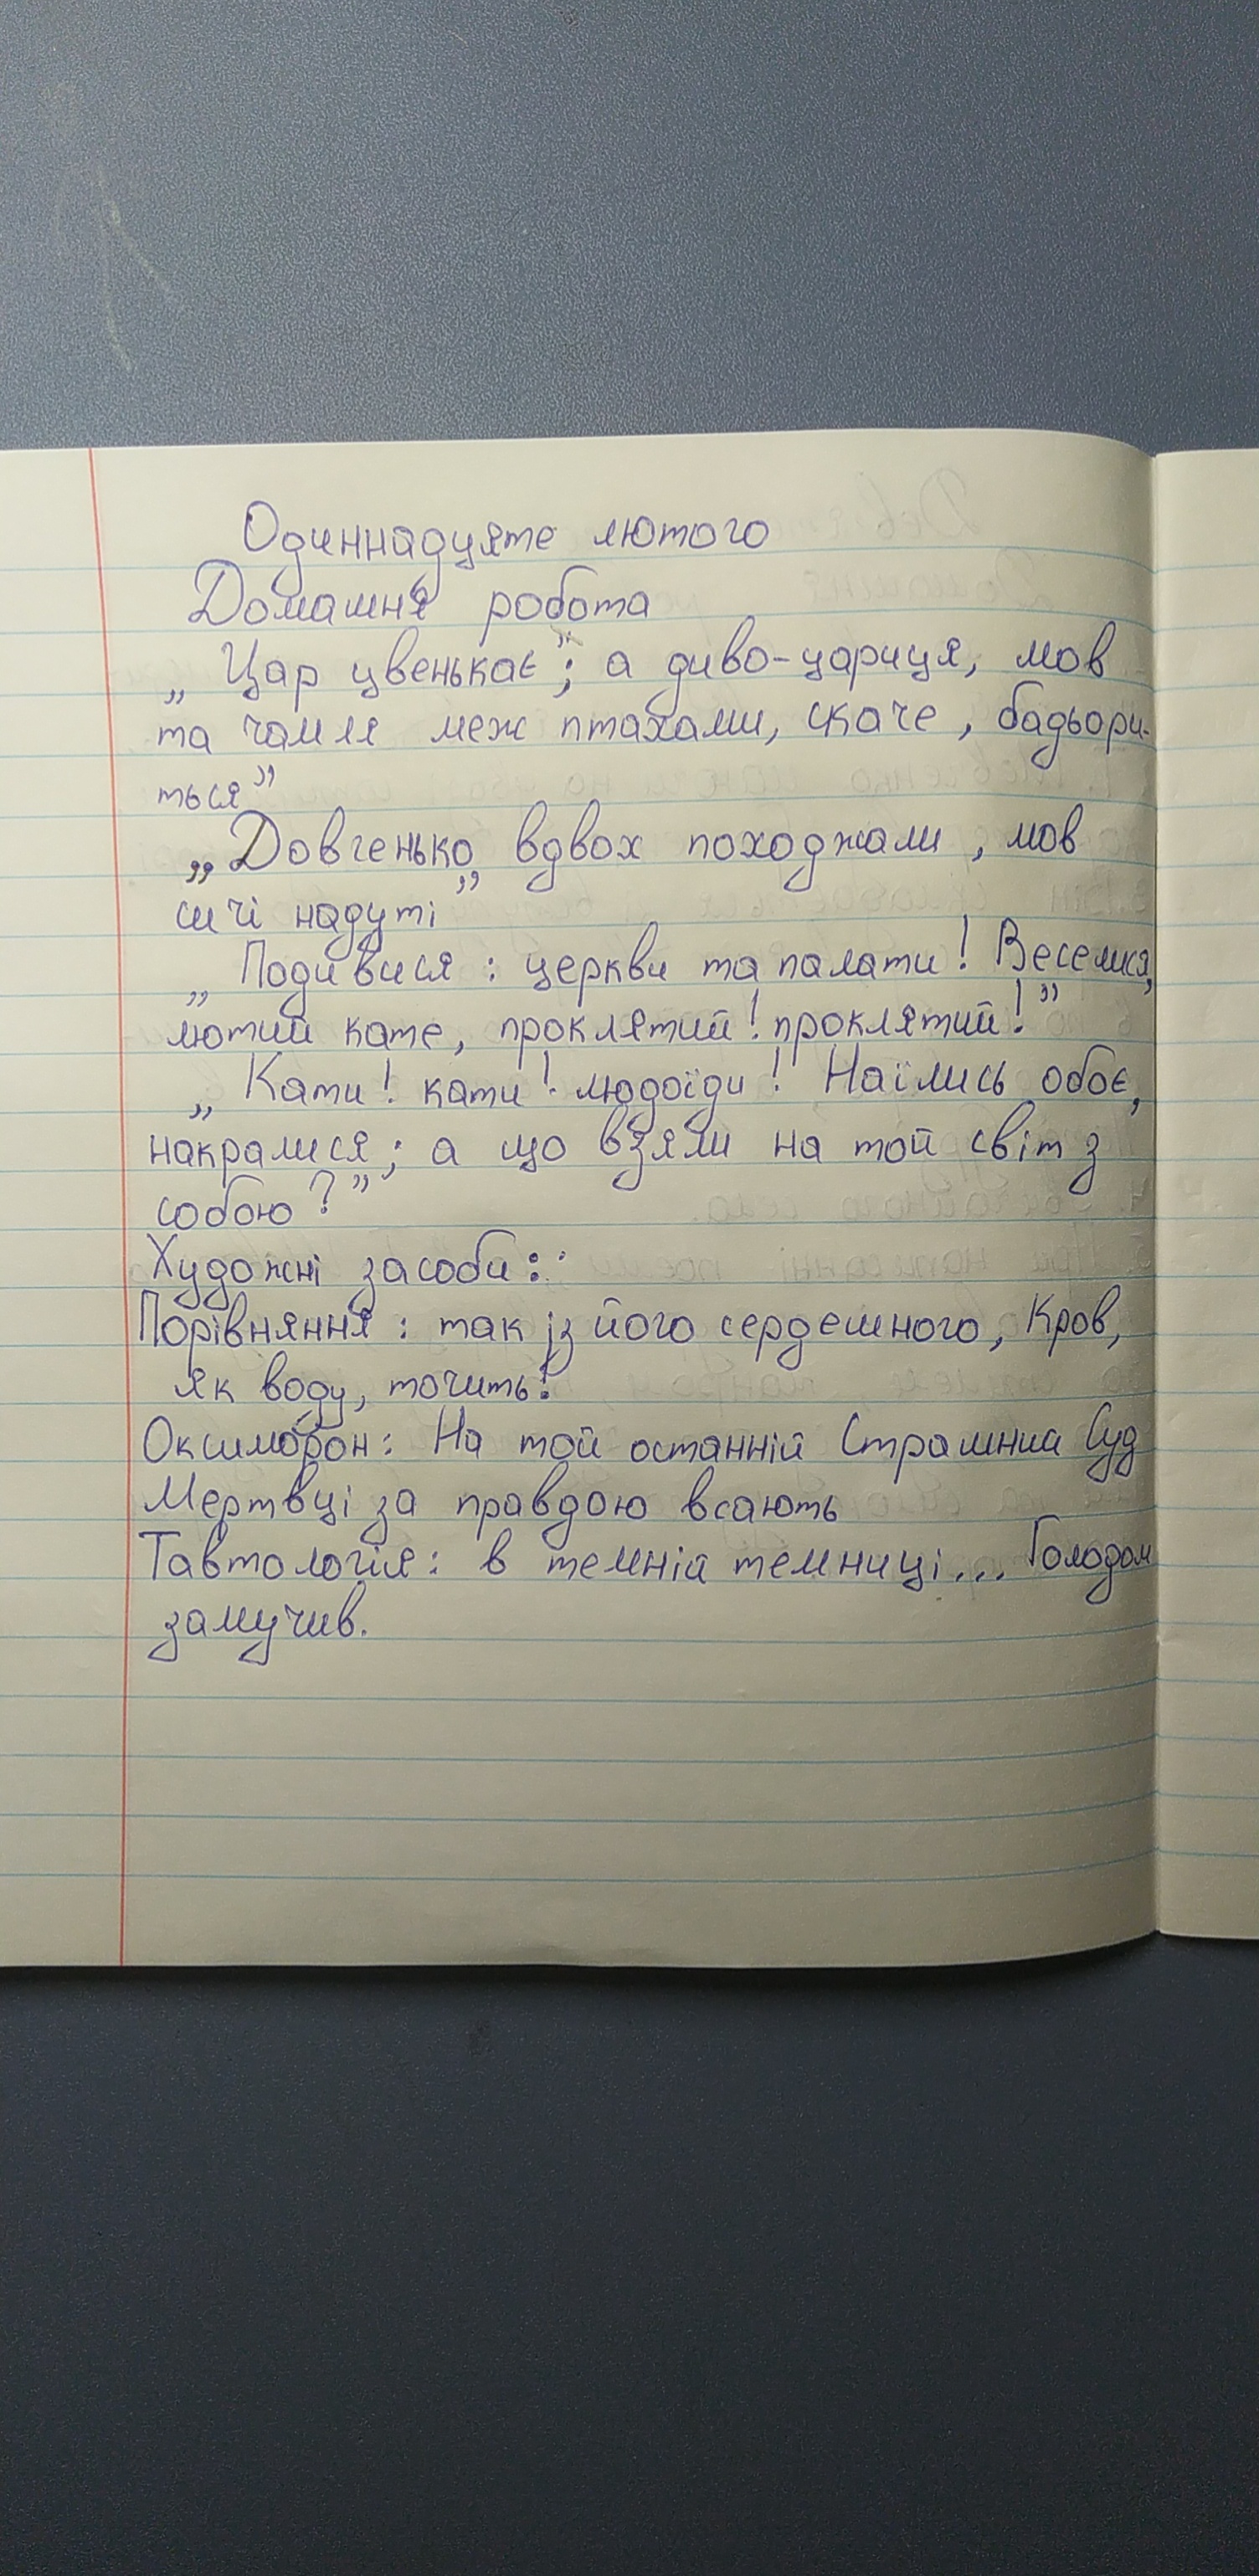 Одиннадцяте лютого
Домашня робота
„Цар цвенькає”; а диво-цариця, мов
та чапля меж птахами, скаче, бадьори-
ться”
„Довгенько вдвох походжали, мов
сичі надуті”
„Подивися: церкви та палати! Веселися,
лютий кате, проклятий! проклятий!”
„Кати! кати! людоїди! Наїлись обоє,
накралися; а що взяли на той світ з
собою?”
Художні засоби:
Порівняння: так із його сердешного, Кров,
як воду, точить!
Оксиморон: На той останній Страшниа Суд
Мертвці за правдою всають
Тавтологія: в темніа темниці... Голодом
замучив.